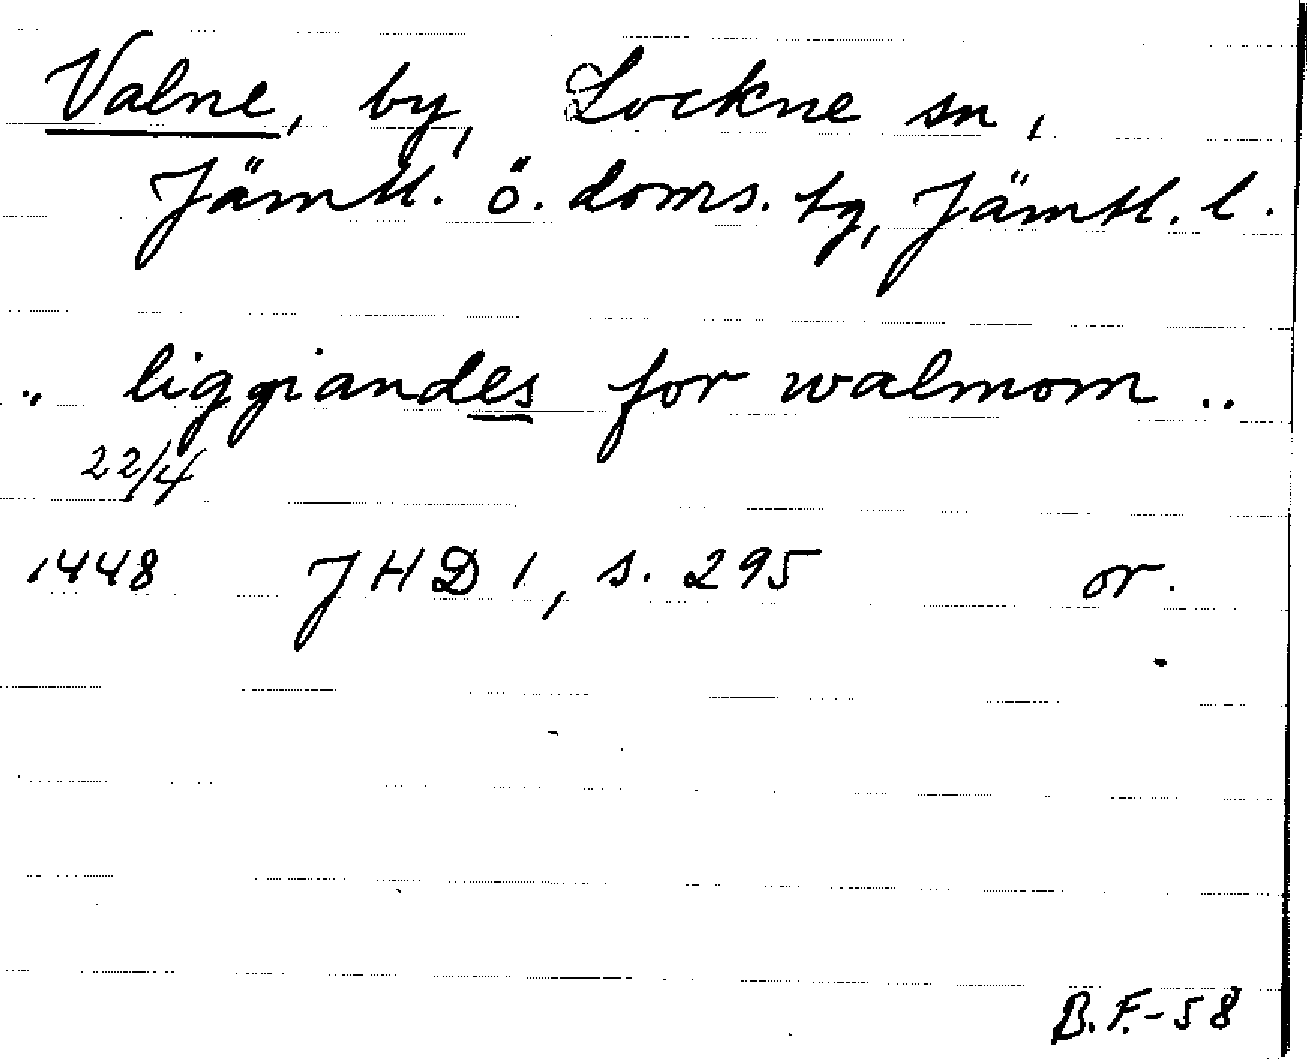 Valne, by, Lockne sn,
Jämtl. ö. doms. tg, Jämtl. l.
.. liggiandes for walmom ..
22/4
1448 JHD 1, s. 295 or.
B.F.-58